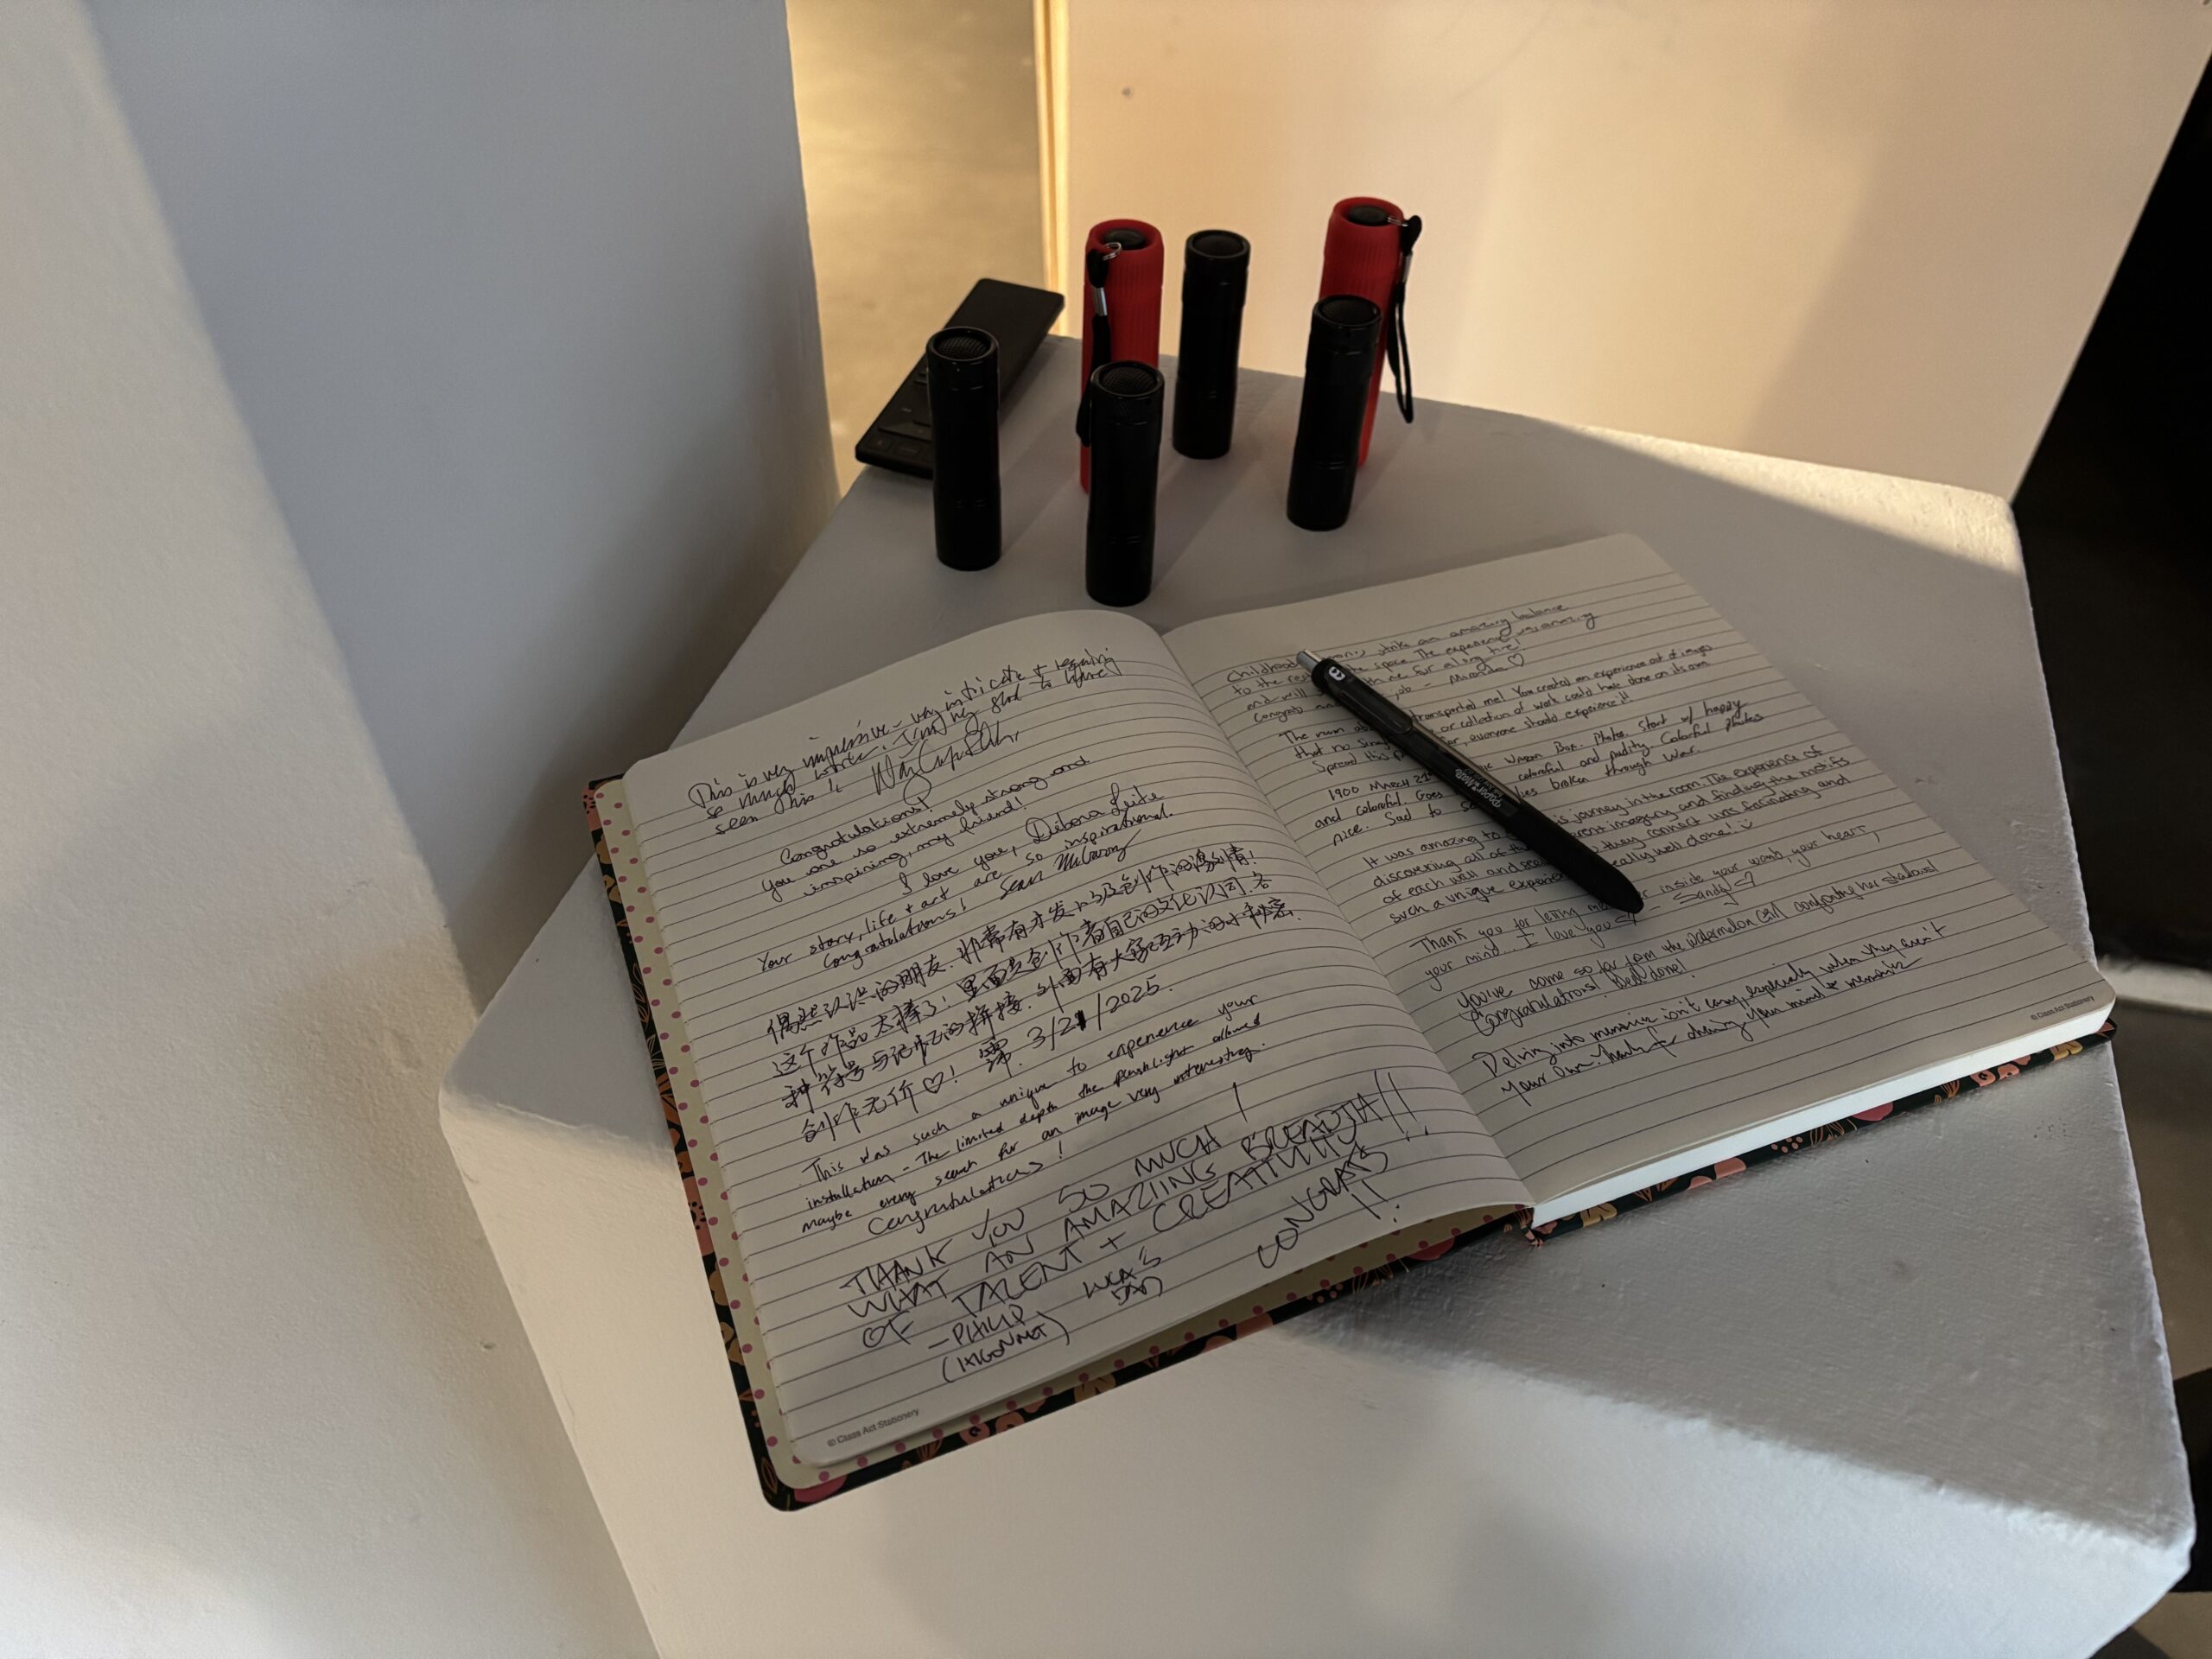 This is very impressive - very intricate + requiring
so much work. I'm very glad to have
seen this!
Congratulations!
You are so extremely strong and
inspiring, my friend!
I love you, Debora Leite
Your story, life + art are so inspirational.
Congratulations! Sean
偶然认识的朋友. 非常有才发
这个作品太棒了! 里面负创作者自己的文化认同.各
种符号与记忆的拼接. 外面有大家互动的小秘密.
创作无价♡! 霈. 3/21/2025.
This was such a unique to experience your
installation - The limited depth the flashlight allowed
maybe every search for an image very interesting.
Congratulations!
THANK YOU SO MUCH!
WHAT AN AMAZIING BREADTH
OF TALENT + CREATIVITY!!
-PHILIP LUCA'S DAD CONGRATS!!
© Class Act Stationery
Childhood strike an amazing balance
to the space. The experience was amazing
and will me for a long time!
Congrats
The room transported me! You created an experience out of images
that no or collection of work could have done on its own.
Spread this everyone should experience!!
1900 March 21 Wagon Box. Photos. Start w/ happy
and colorful. Goes colorful and Colorful photos
nice. Sad to broken through war.
It was amazing to is journey in the room. The experience of
discovering all of the imagery and finding the motifs
of each wall and they connect was fascinating and
such a unique experience really well done!
Thank you for letting inside your womb, your heart,
your mind.. I love you - Sandy
You've come so far from the watermelon Girl confronting her shadows!
Congratulations! Well done!
Delving into memories isn't easy, especially when they aren't
your own. Thanks for sharing your mind & memories
© Class Act Stationery